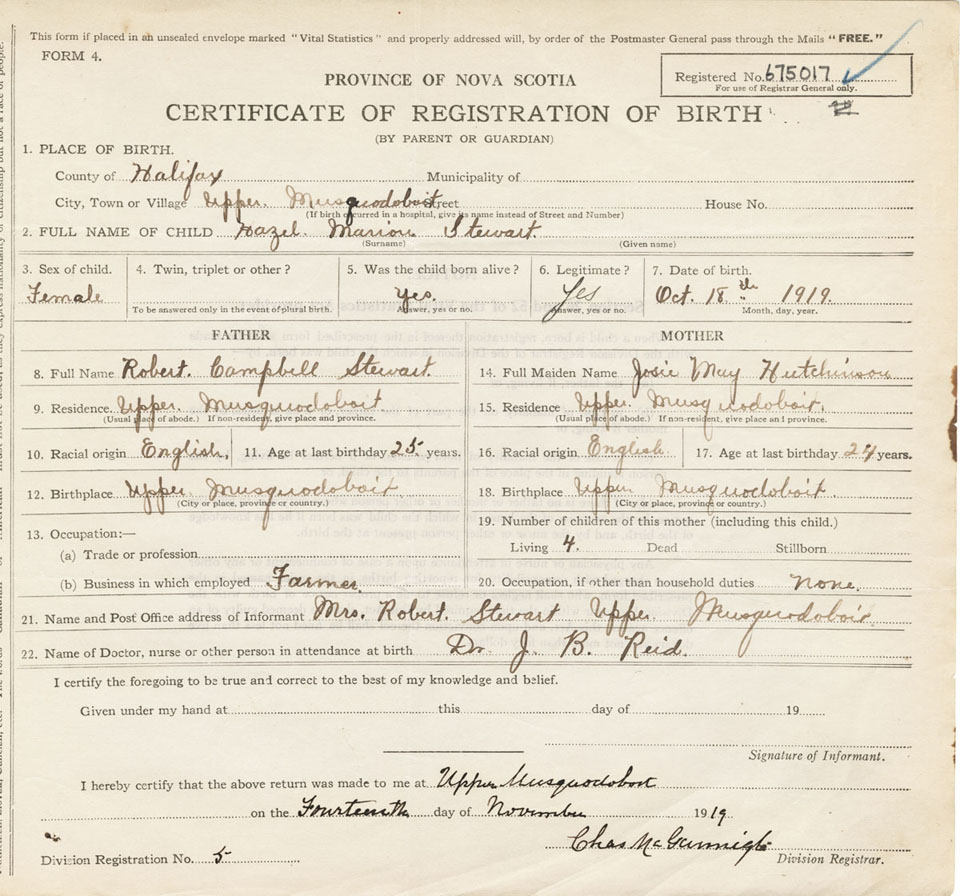 This form if placed in an unsealed envelope marked "Vital Statistics" and properly addressed will, by order of the Postmaster General pass through the Mails "FREE."
FORM 4.
PROVINCE OF NOVA SCOTIA
Registered No. 675017
For use of Registrar General only.
CERTIFICATE OF REGISTRATION OF BIRTH
(BY PARENT OR GUARDIAN)
1. PLACE OF BIRTH.
County of Halifax Municipality of
City, Town or Village Upper Musquodoboit Street House No.
(If birth occurred in a hospital, give its name instead of Street and Number)
2. FULL NAME OF CHILD Hazel Marion Stewart
(Surname) (Given name)
3. Sex of child. 4. Twin, triplet or other? 5. Was the child born alive? 6. Legitimate? 7. Date of birth.
Female Yes. Yes Oct. 18th 1919.
To be answered only in the event of plural birth. Answer, yes or no. Answer, yes or no. Month, day, year.
FATHER MOTHER
8. Full Name Robert Campbell Stewart. 14. Full Maiden Name Josie May Hutchinson
9. Residence. Upper Musquodoboit 15. Residence Upper Musquodoboit.
(Usual place of abode.) If non-resident, give place and province. (Usual place of abode.) If non-resident, give place and province.
10. Racial origin English, 11. Age at last birthday 25 years. 16. Racial origin English 17. Age at last birthday years.
12. Birthplace Upper Musquodoboit. 18. Birthplace Upper Musquodoboit.
(City or place, province or country.) (City or place, province or country.)
13. Occupation:— 19. Number of children of this mother (including this child.)
(a) Trade or profession Living 4. Dead Stillborn
(b) Business in which employed Farmer. 20. Occupation, if other than household duties none.
21. Name and Post Office address of Informant Mrs. Robert Stewart Upper Musquodoboit
22. Name of Doctor, nurse or other person in attendance at birth Dr. J. B. Reid.
I certify the foregoing to be true and correct to the best of my knowledge and belief.
Given under my hand at this day of 19
Signature of Informant.
I hereby certify that the above return was made to me at Upper Musquodoboit
on the Fourteenth day of November 1919.
Chas
Division Registration No. 5 Division Registrar.